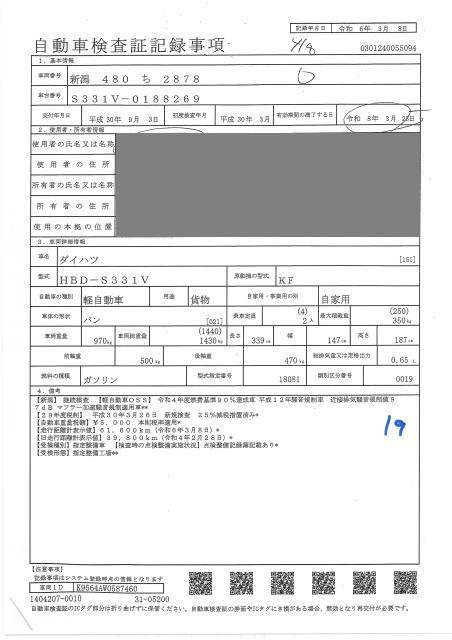 記録年月日 令和 6年 3月 8日
自動車検査証記録事項
4/8
0301240055094
1. 基本情報
車両番号 新潟 480 ち 2878
車台番号 S331V-0188269
交付年月日 平成 30年 9月 3日 初度検査年月 平成 30年 3月 有効期間の満了する日 令和 8年 3月 25日
2. 使用者・所有者情報
使用者の氏名又は名称
使用者の住所
所有者の氏名又は名称
所有者の住所
使用の本拠の位置
3. 車両詳細情報
車名 ダイハツ [151]
型式 HBD-S331V 原動機の型式 KF
自動車の種別 軽自動車 用途 貨物 自家用・事業用の別 自家用
車体の形状 バン [021] 乗車定員 (4) 2人 最大積載量 (250) 350kg
車両重量 970kg 車両総重量 (1440) 1430kg 長さ 339cm 幅 147cm 高さ 187cm
前軸重 500kg 後軸重 470kg 総排気量又は定格出力 0.65 L
燃料の種類 ガソリン 型式指定番号 18081 類別区分番号 0019
4. 備考
【新潟】 継続検査 【軽自動車OSS】 令和4年度燃費基準90%達成車 平成12年騒音規制車 近接排気騒音規制値9
7dB マフラー加速騒音規制適用車**
【29年度税制】 平成30年3月26日 新規検査 25%減税措置済み*
【自動車重量税額】¥5,000 本則税率適用*
【走行距離計表示値】61,600km(令和6年3月8日)*
【旧走行距離計表示値】39,800km(令和4年2月28日)*
【受検種別】指定整備車 【検査時の点検整備実施状況】点検整備記録簿記載あり*
【受検形態】指定整備工場**
19
【注意事項】
記録事項はシステム登録時点の情報となります
車両ID K9564AW0587460
1404207-0010 31-05200
自動車検査証のICタグ部分は折り曲げずに保管ください。自動車検査証の券面やICタグにき損がある場合、無効となり再交付が必要です。